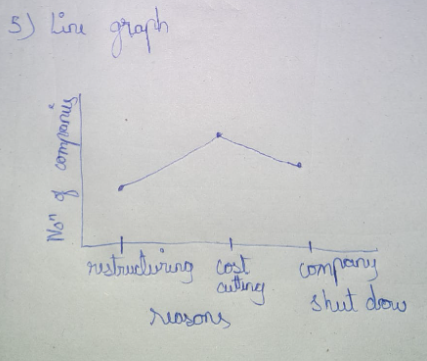 5) Line graph
Noⁿ of companies
restructuring
cost
cutting
company
shut dow
reasons